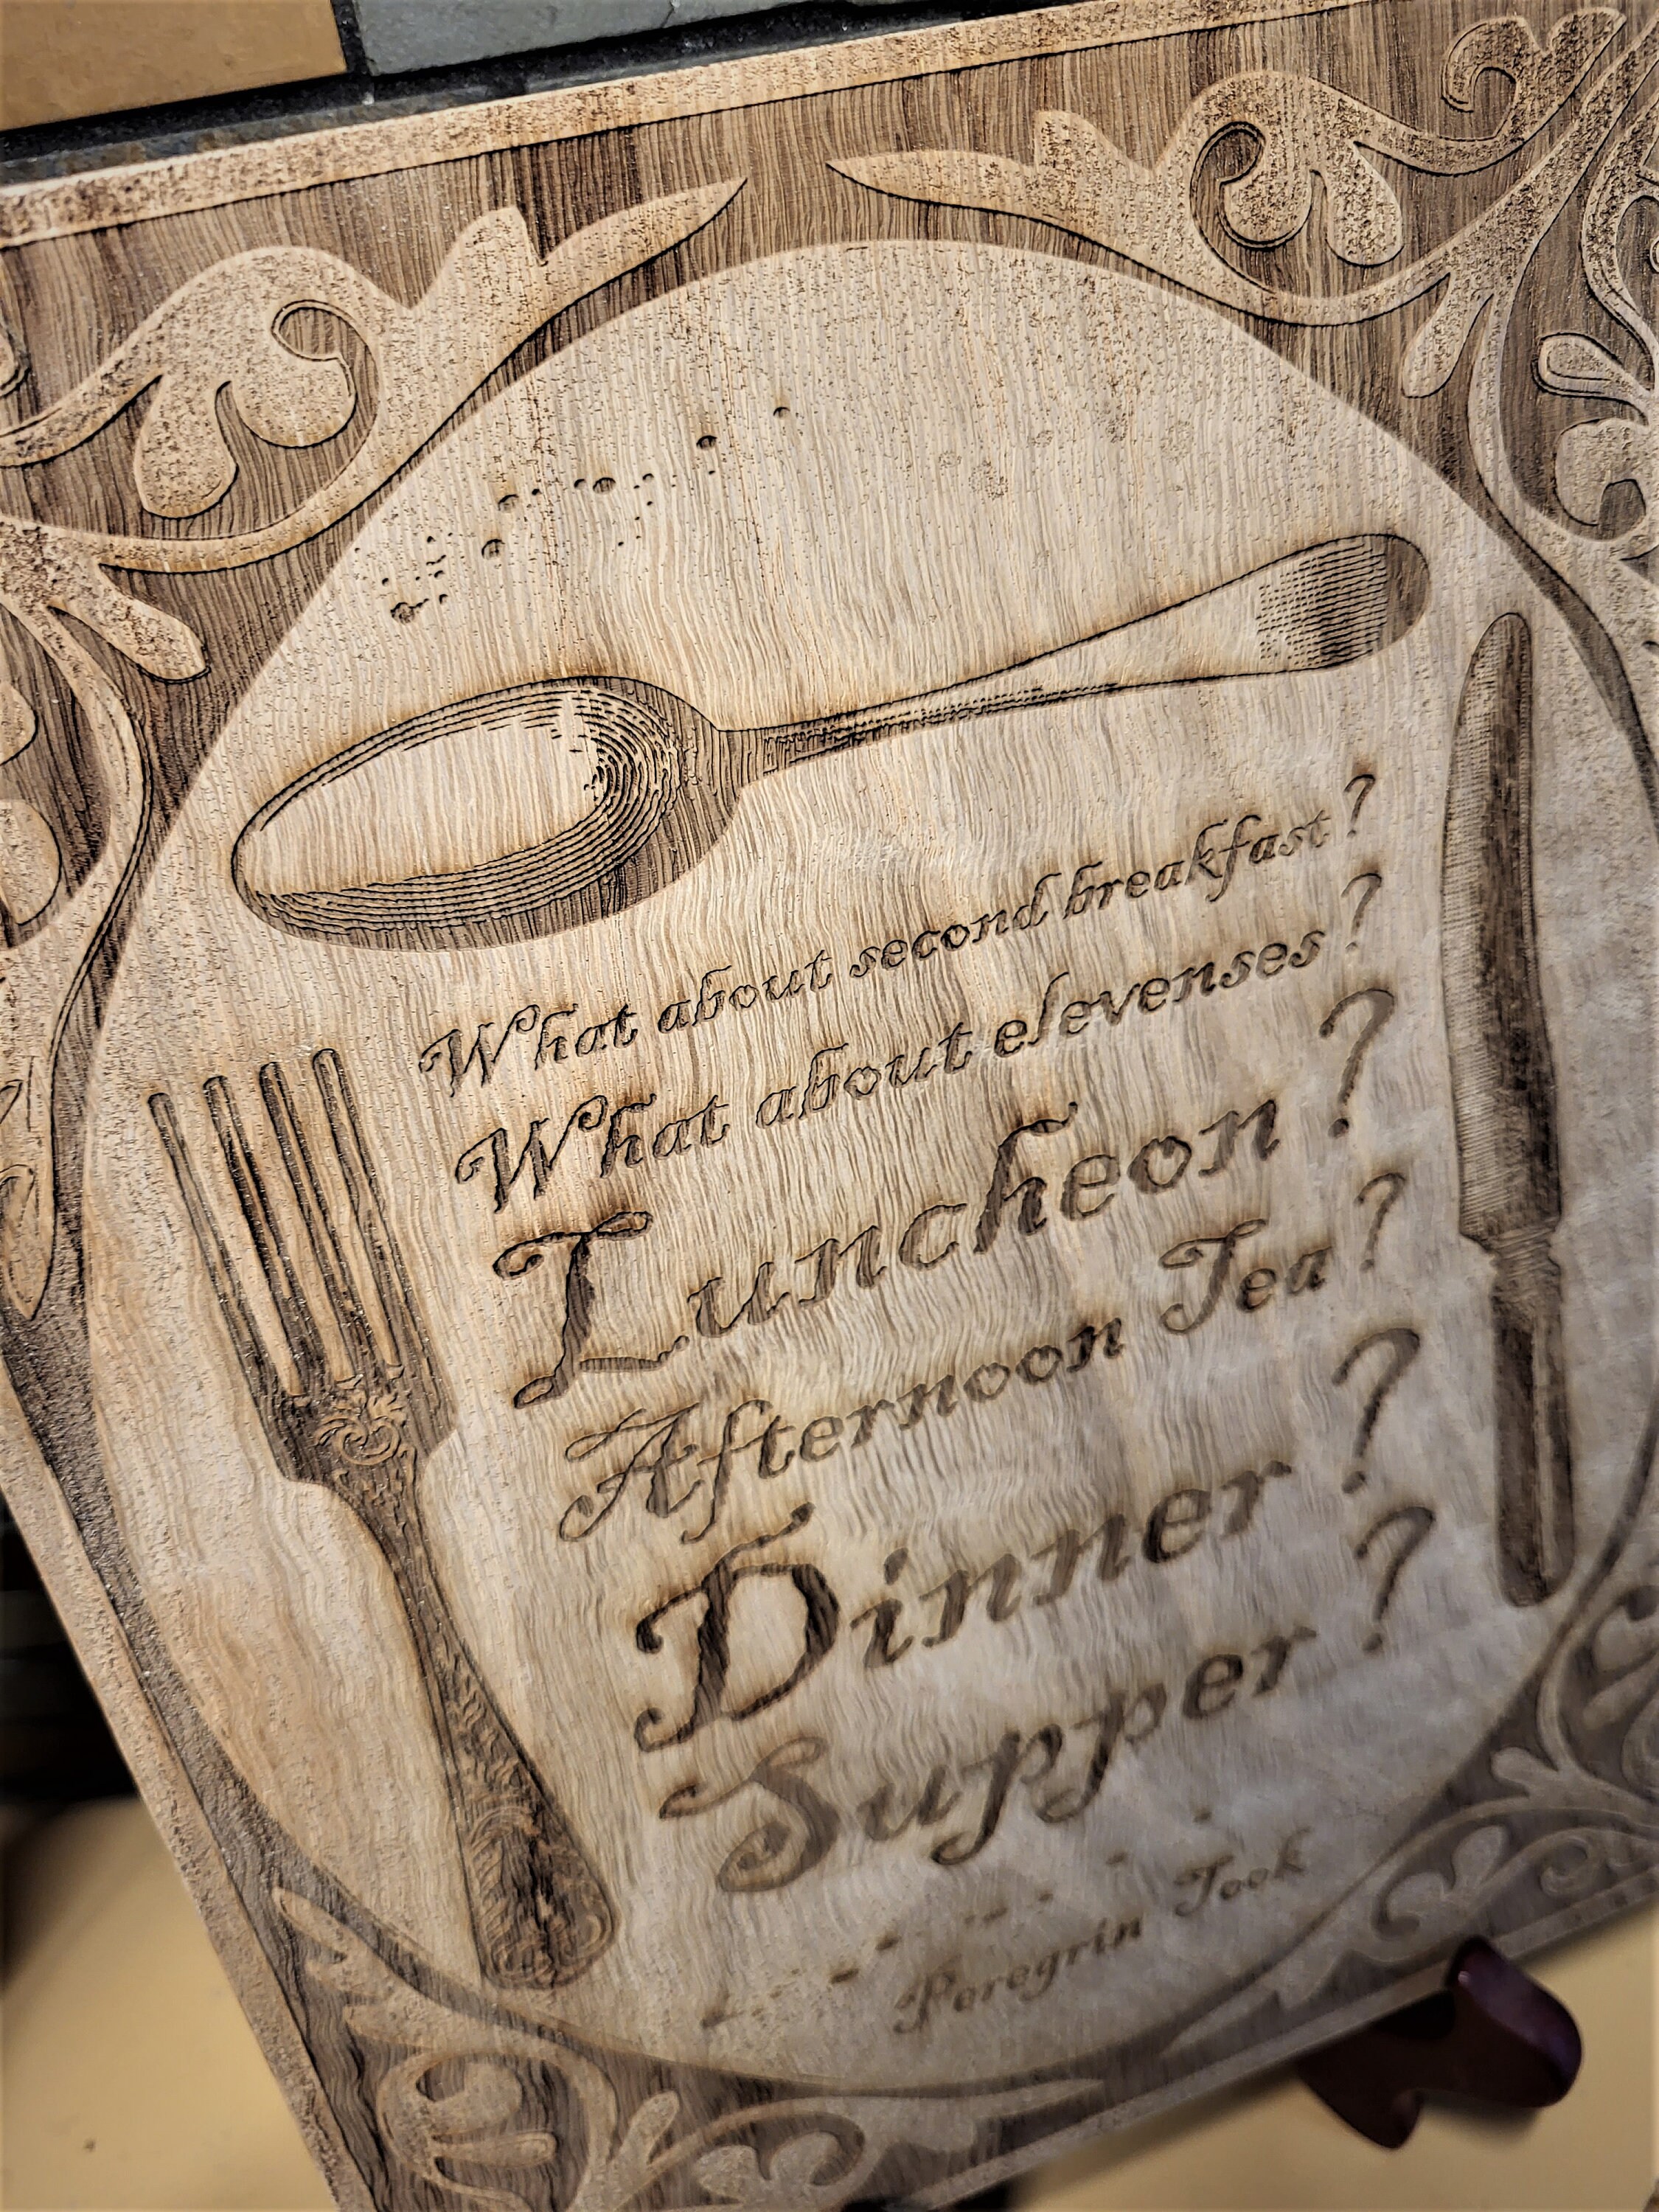 What about second breakfast?
What about elevenses?
Luncheon?
Afternoon Tea?
Dinner?
Supper?
Peregrin Took